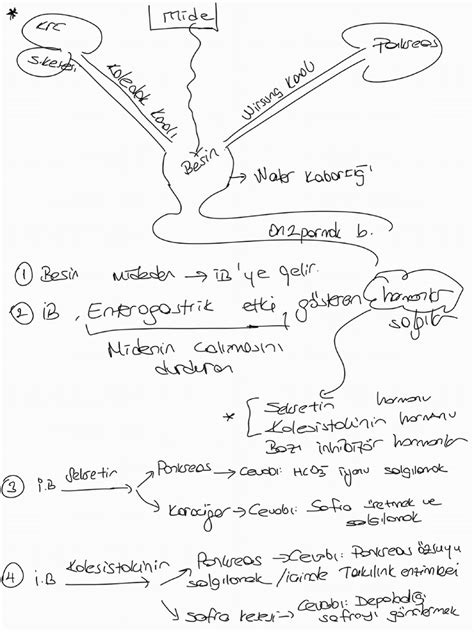 * Mide
KRC
S.kesesi
Koledok Kanalı
Wirsung Kanalı
Pankreas
Besin
→ Water Kabarcığı
On2parmak b.
① Besin mideden → İB'ye gelir.
② İB, Enterogastrik etki gösteren hormonlar salgılar
Midenin çalışmasını durduran
* Sekretin hormonu
Kolesistokinin hormonu
Bazı inhibitör hormonlar
③ İ.B Sekretin → Pankreas → Cevabı: HCO3 iyonu salgılamak
→ Karaciğer → Cevabı: Safra üretmek ve salgılamak
④ İ.B Kolesistokinin → Pankreas → Cevabı: Pankreas özsuyu salgılamak / içinde enzimleri
→ safra kesesi → Cevabı: Depoladığı safrayı göndermek